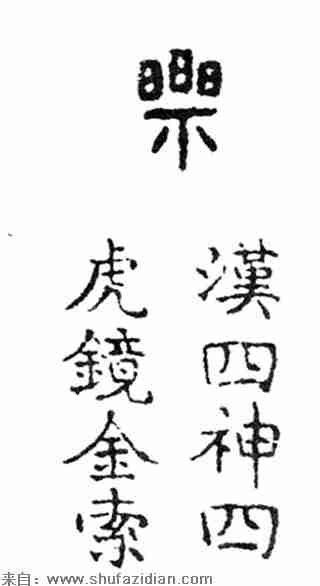 樂
漢四神四
虎鏡金索
来自：www.shufazidian.com